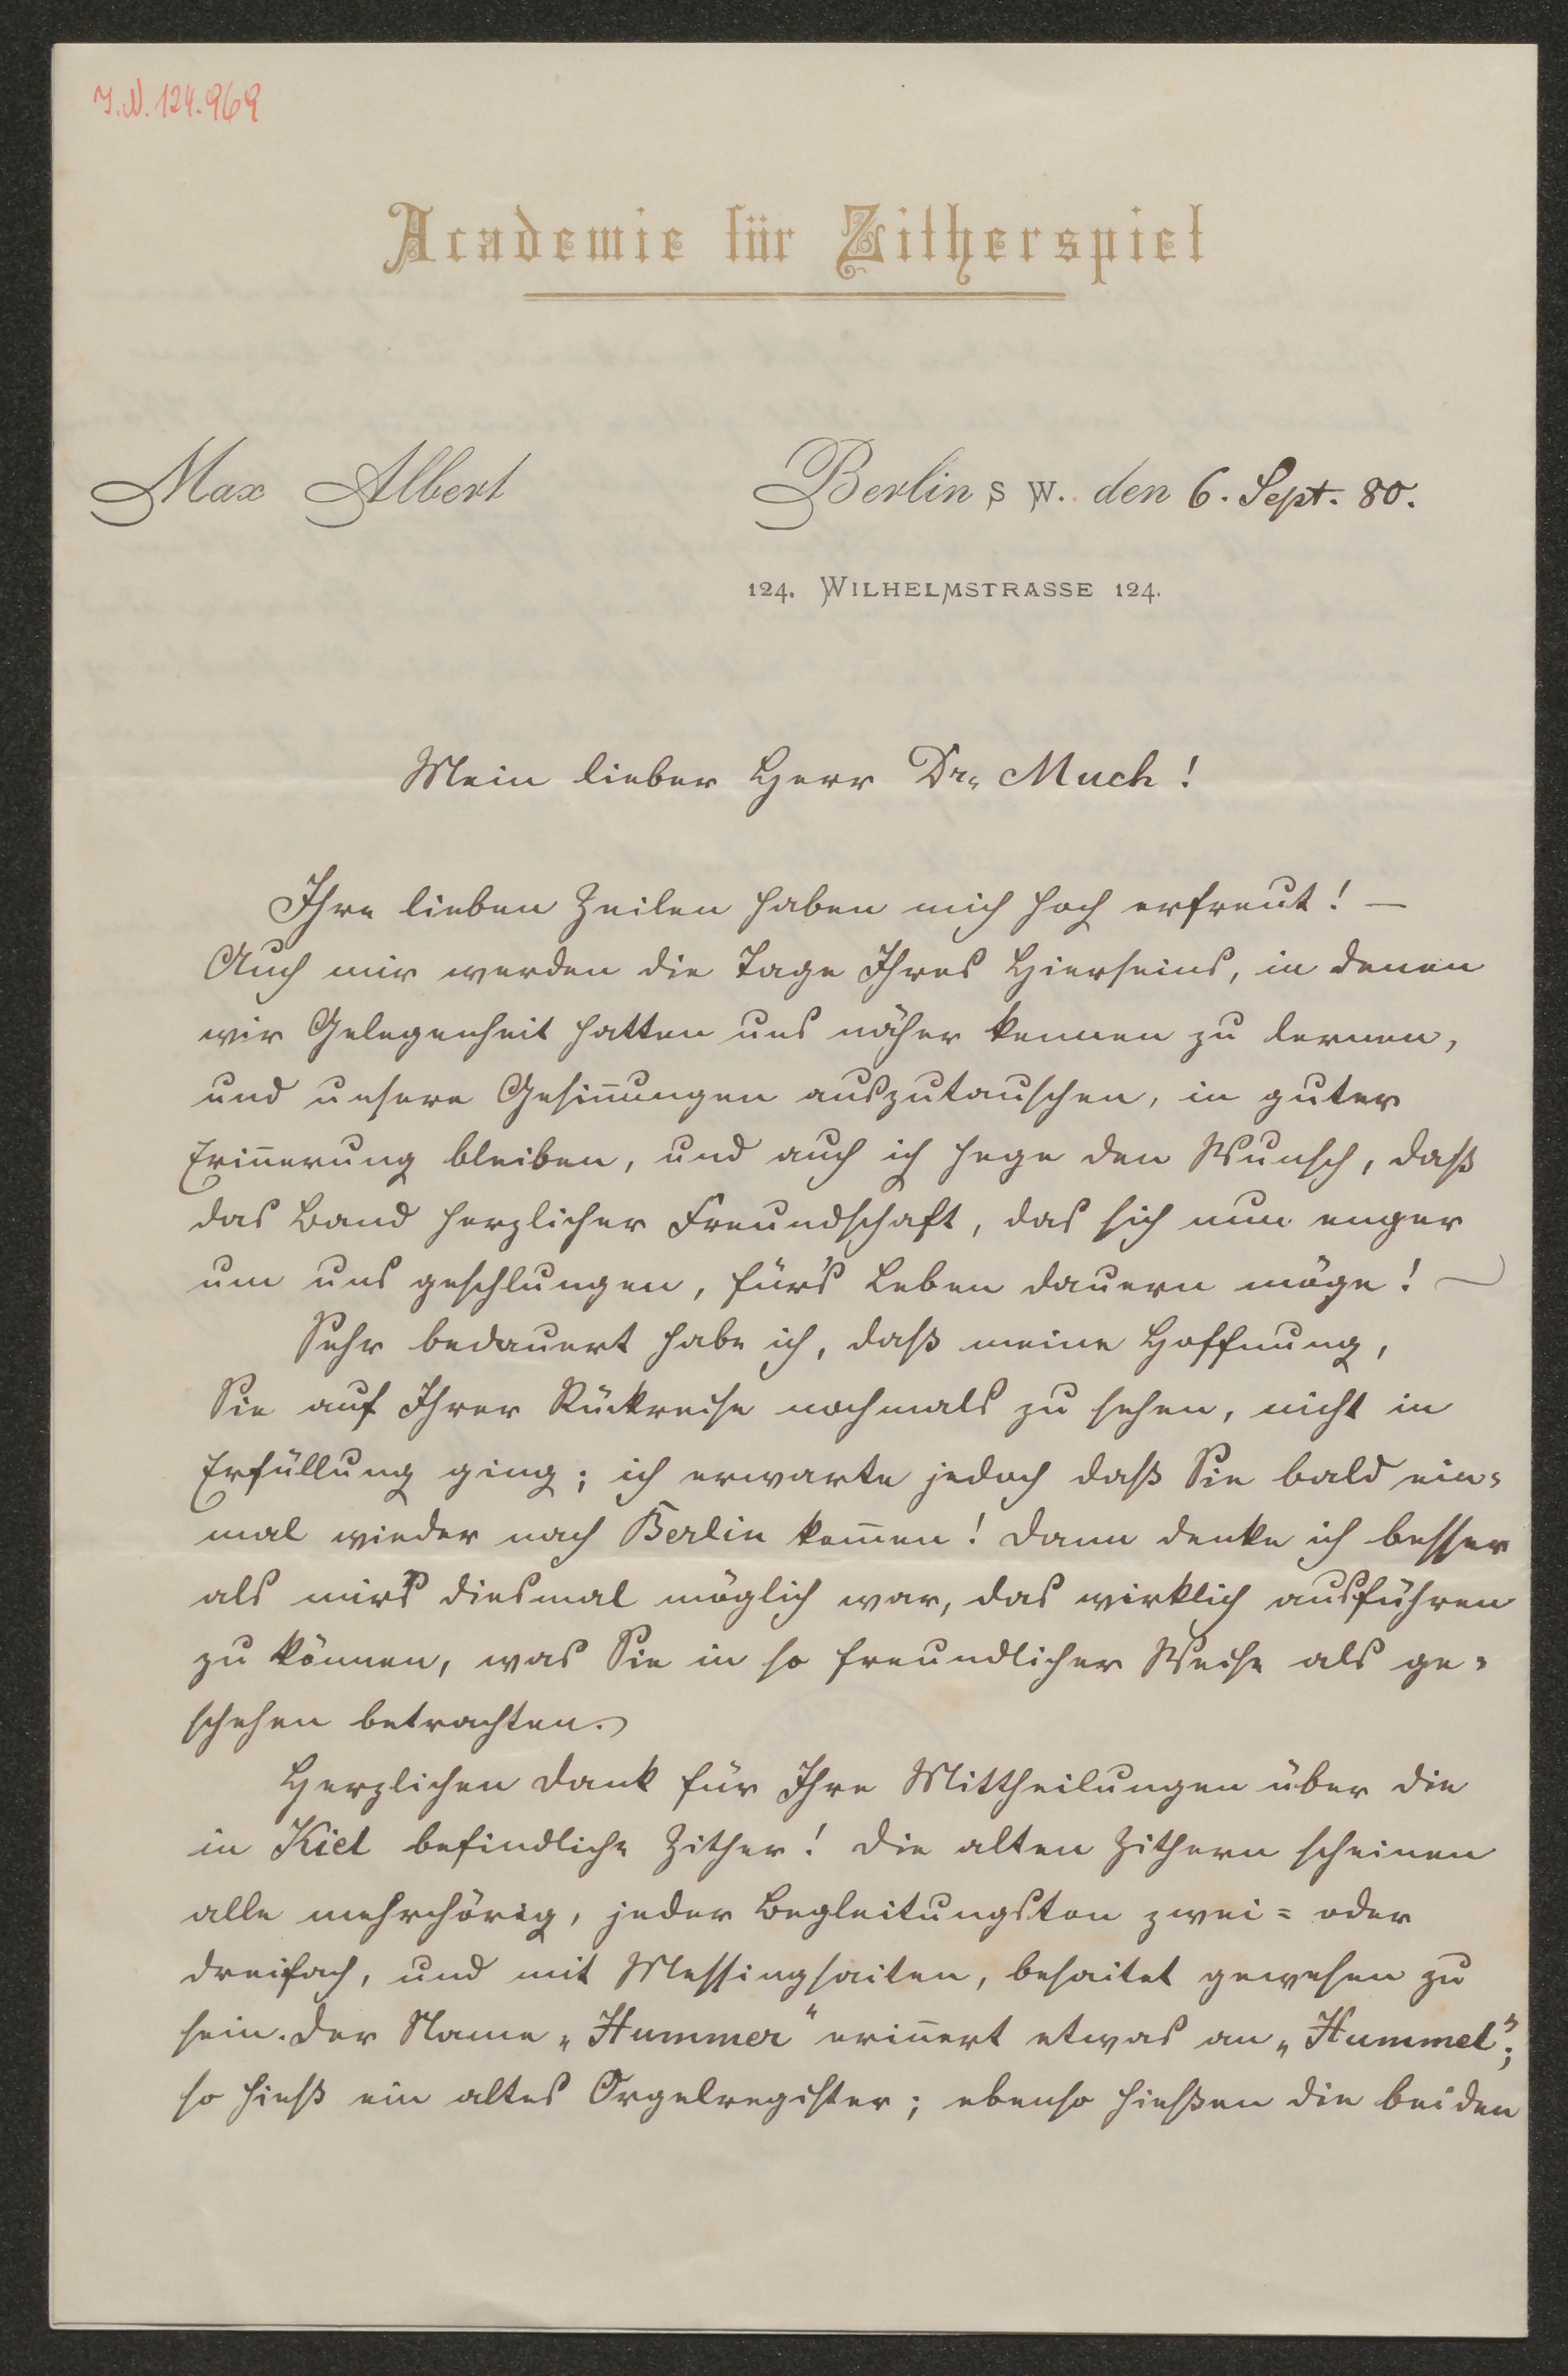 J.N. 124.969
Academie für Zitherspiel
Max Albert
Berlin S W. den 6. Sept. 80.
124. WILHELMSTRASSE 124.
Mein lieber Herr Dr. Much!
Ihre lieben Zeilen haben mich hoch erfreut! —
Auch mir werden die Tage Ihres Hierseins, in denen
wir Gelegenheit hatten uns näher kennen zu lernen,
und unsere Gesin̄ungen auszutauschen, in guter
Erin̄erung bleiben, und auch ich hege den Wunsch, daß
das Band herzlicher Freundschaft, das sich nun enger
um uns geschlungen, für's Leben dauern möge! —
Sehr bedauert habe ich, daß meine Hoffnung,
Sie auf Ihrer Rückreise nochmals zu sehen, nicht in
Erfüllung ging; ich erwarte jedoch daß Sie bald ein=
mal wieder nach Berlin kom̄en! Dann denke ich besser
als mir's diesmal möglich war, das wirklich ausführen
zu können, was Sie in so freundlicher Weise als ge=
schehen betrachten.
Herzlichen Dank für Ihre Mittheilungen über die
in Kiel befindliche Zither! Die alten Zithern scheinen
alle mehrchörig, jeder Begleitungston zwei= oder
dreifach, und mit Messingsaiten, besaitet gewesen zu
sein. Der Name „Hummer“ erin̄ert etwas an „Hummel“;
so hieß ein altes Orgelregister; ebenso hießen die beiden